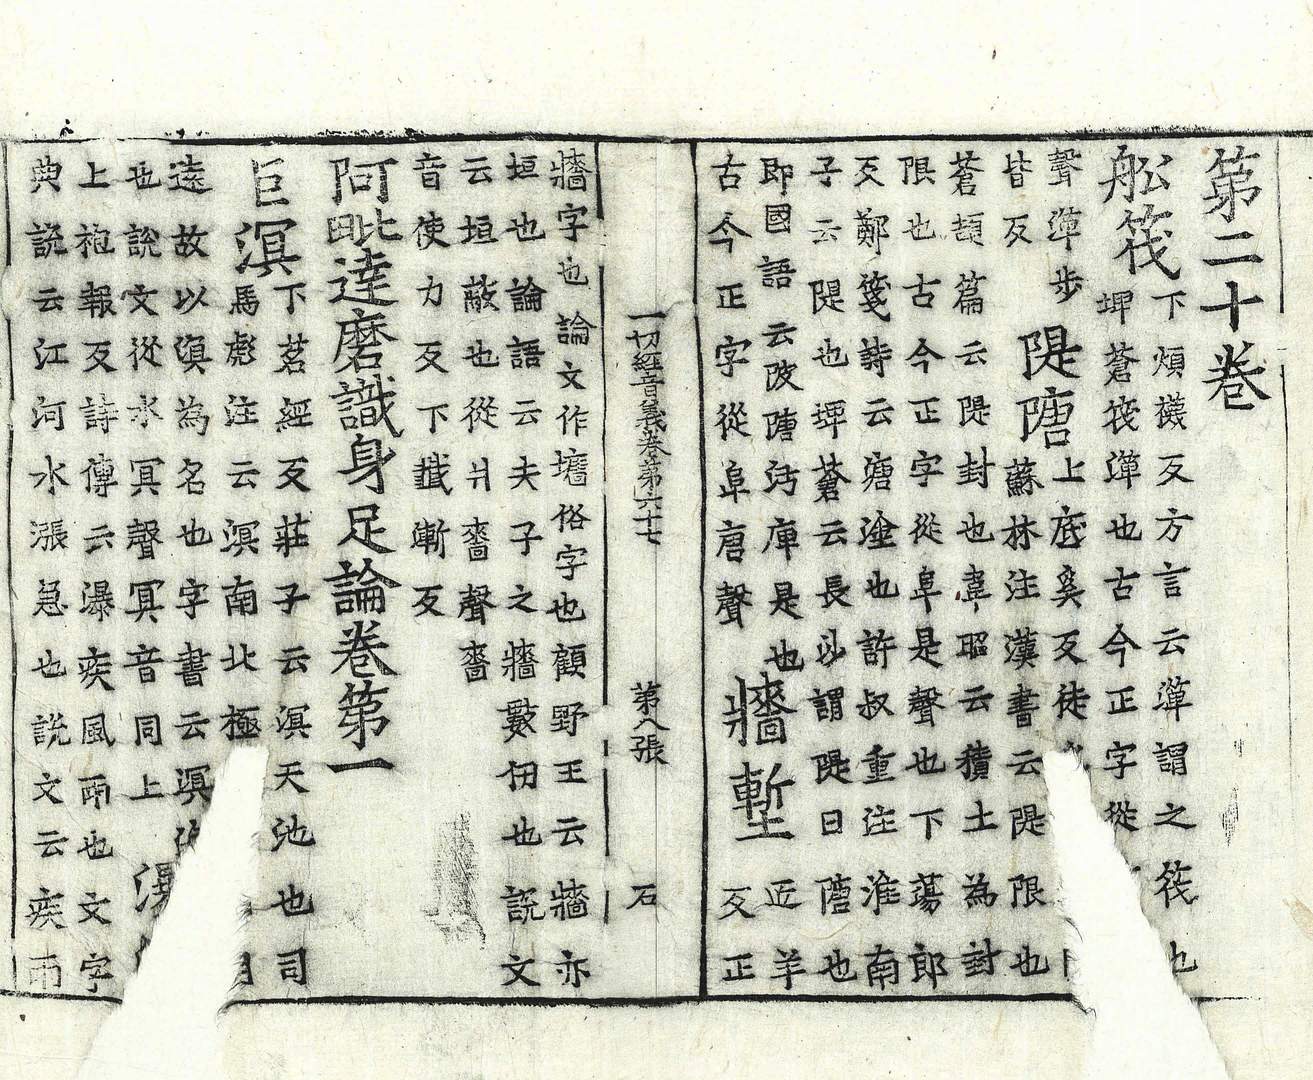 第二十卷
舩筏下煩襪反方言云箄謂之筏也
埤蒼筏箄也古今正字從
聲箄步皆反
隄隯上底奚反徒
蘇林注漢書云隄限也
蒼頡篇云隄封也韋昭云積土為封
限也古今正字從阜是聲也下蕩郎
反鄭箋詩云塘塗也許叔重注淮南
子云隄也埤蒼云長沙謂隄曰隯也
即國語云陂隯汙庳是也
古今正字從阜唐聲
牆塹匠羊反正
一切經音義卷第六十七 第八張 石
牆字也論文作墻俗字也顧野王云牆亦
垣也論語云夫子之牆數仞也說文
云垣蔽也從爿嗇聲嗇
音使力反下籤漸反
阿毗達磨識身足論卷第一
巨溟下茗經反莊子云溟天池也司
馬彪注云溟南北極
遠故以溟為名也字書云溟海
也說文從水冥聲冥音同上
瀑
上袍報反詩傳云瀑疾風雨也文字
典說云江河水漲急也說文云疾雨